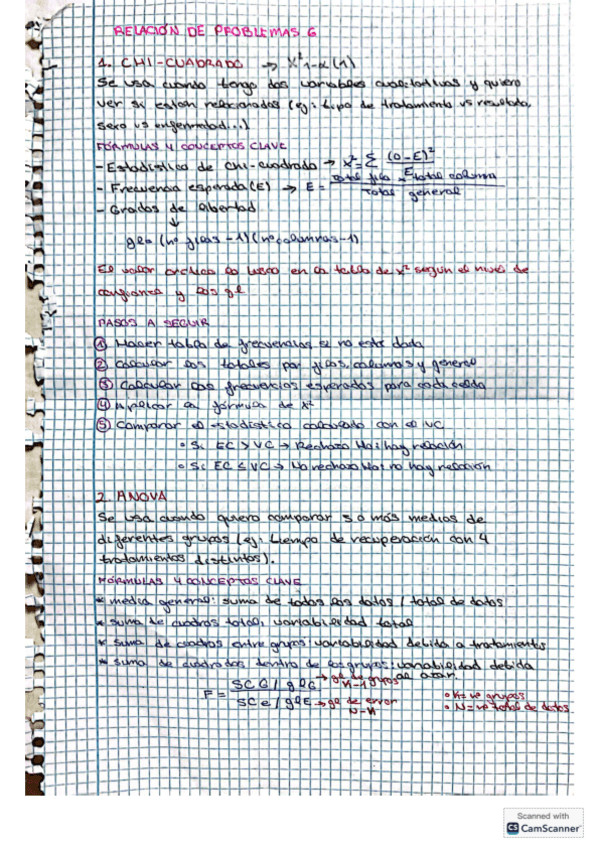 RELACIÓN DE PROBLEMAS 6
1. CHI-CUADRADO → X²1-α(1)
Se usa cuando tengo dos variables cualitativas y quiero
ver si están relacionadas (ej: tipo de tratamiento vs resultado,
sexo vs enfermedad...)
FÓRMULAS Y CONCEPTOS CLAVE
- Estadístico de chi-cuadrado → X² = Σ (O-E)² / E
- Frecuencia esperada (E) → E = Total fila × total columna / Total general
- Grados de libertad
↓
gl = (nº filas - 1)(nº columnas - 1)
El valor crítico lo busco en la tabla de X² según el nivel de
confianza y los gl
PASOS A SEGUIR
① Hacer tabla de frecuencias si no está dada
② Calcular los totales por filas, columnas y general
③ Calcular las frecuencias esperadas para cada celda
④ Aplicar la fórmula de X²
⑤ Comparar el estadístico calculado con el VC
• Si EC > VC → Rechazo H0: hay relación
• Si EC ≤ VC → No rechazo H0: no hay relación
2. ANOVA
Se usa cuando quiero comparar 3 o más medias de
diferentes grupos (ej: tiempo de recuperación con 4
tratamientos distintos).
FÓRMULAS Y CONCEPTOS CLAVE
* media general: suma de todos los datos / total de datos
* suma de cuadros total: variabilidad total
* suma de cuadros entre grupos: variabilidad debida a tratamientos
* suma de cuadrados dentro de los grupos: variabilidad debida
al azar.
F = SCG / glG → gl de grupos K-1
SCe / glE → gl de error N-K
• K = nº grupos
• N = nº total de datos
Scanned with
CS CamScanner